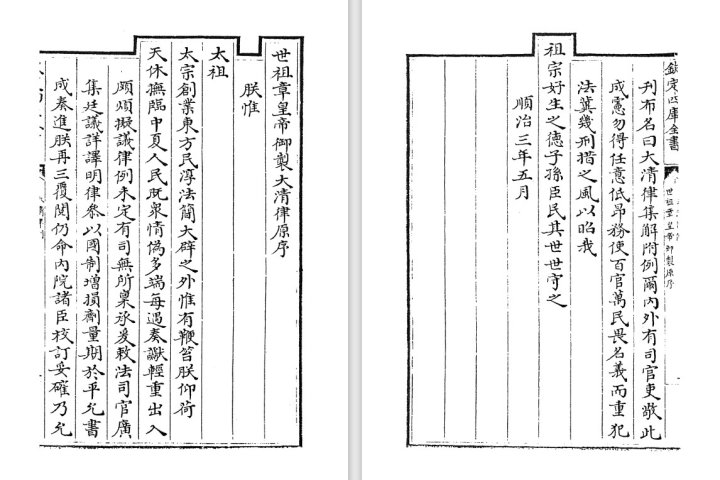 世祖章皇帝御製大清律原序
朕惟
太祖
太宗創業東方民淳法簡大辟之外惟有鞭笞朕仰荷
天休撫臨中夏人民既衆情偽多端每遇奏讞輕重出入
頗煩擬議律例未定有司無所稟承爰敕法司官廣
集廷議詳譯明律參以國制增損劑量期於平允書
成奏進朕再三覆閱仍命內院諸臣校訂妥確乃允
欽定四庫全書
世祖章皇帝御製原序
刊布名曰大清律集解附例爾內外有司官吏敬此
成憲勿得任意低昂務使百官萬民畏名義而重犯
法冀幾刑措之風以昭我
祖宗好生之德子孫臣民其世世守之
順治三年五月